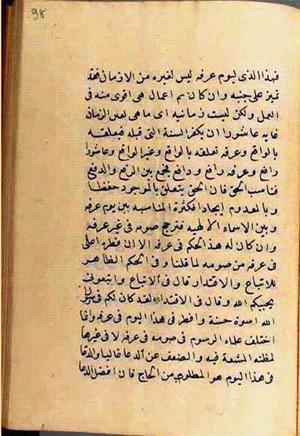 ٩٤
فهذا الذى ليوم عرفه ليس لغيره من الازمان فقد
تميز على جنبه وان كان ثم اعمال هى اقوى منه فى
العمل ولكن ليست زمانية اى ما هى لعين الزمان
غايه عاشورا ان يكفر السنة التى قبله فتعلقه
بالواقع وعرفه تعلقه بالواقع وغير الواقع وعاشورا
رافع وعرفه رافع ودافع فجمع بين الرفع والدفع
فناسب الحق فان الحق يتعلق بالموجود حفظا
وبالمعدوم ايجادا فكثرة المناسبه بين يوم عرفه
وبين الاسماء الالهيه فترجح صومه فى غير عرفه
وان كان له هذا الحكم فى عرفه الا ان فطرها اعلى
فى عرفه من صومه لما قلناه وفى الحكم الظاهر
للاتباع والاقتداء قال فى الاتباع واتبعونى
يحببكم الله وقال فى الاقتداء لقد كان لكم فى رسول
الله اسوة حسنة وافطر فى هذا اليوم فى عرفه وانما
اختلف علماء الرسوم فى صومه فى عرفه لا فى غيرها
لمظنه المشقة فيه والضعف عن الدعا غالبا والدعا
فى هذا اليوم هو المطلوب من الحاج فان افضل الدعا